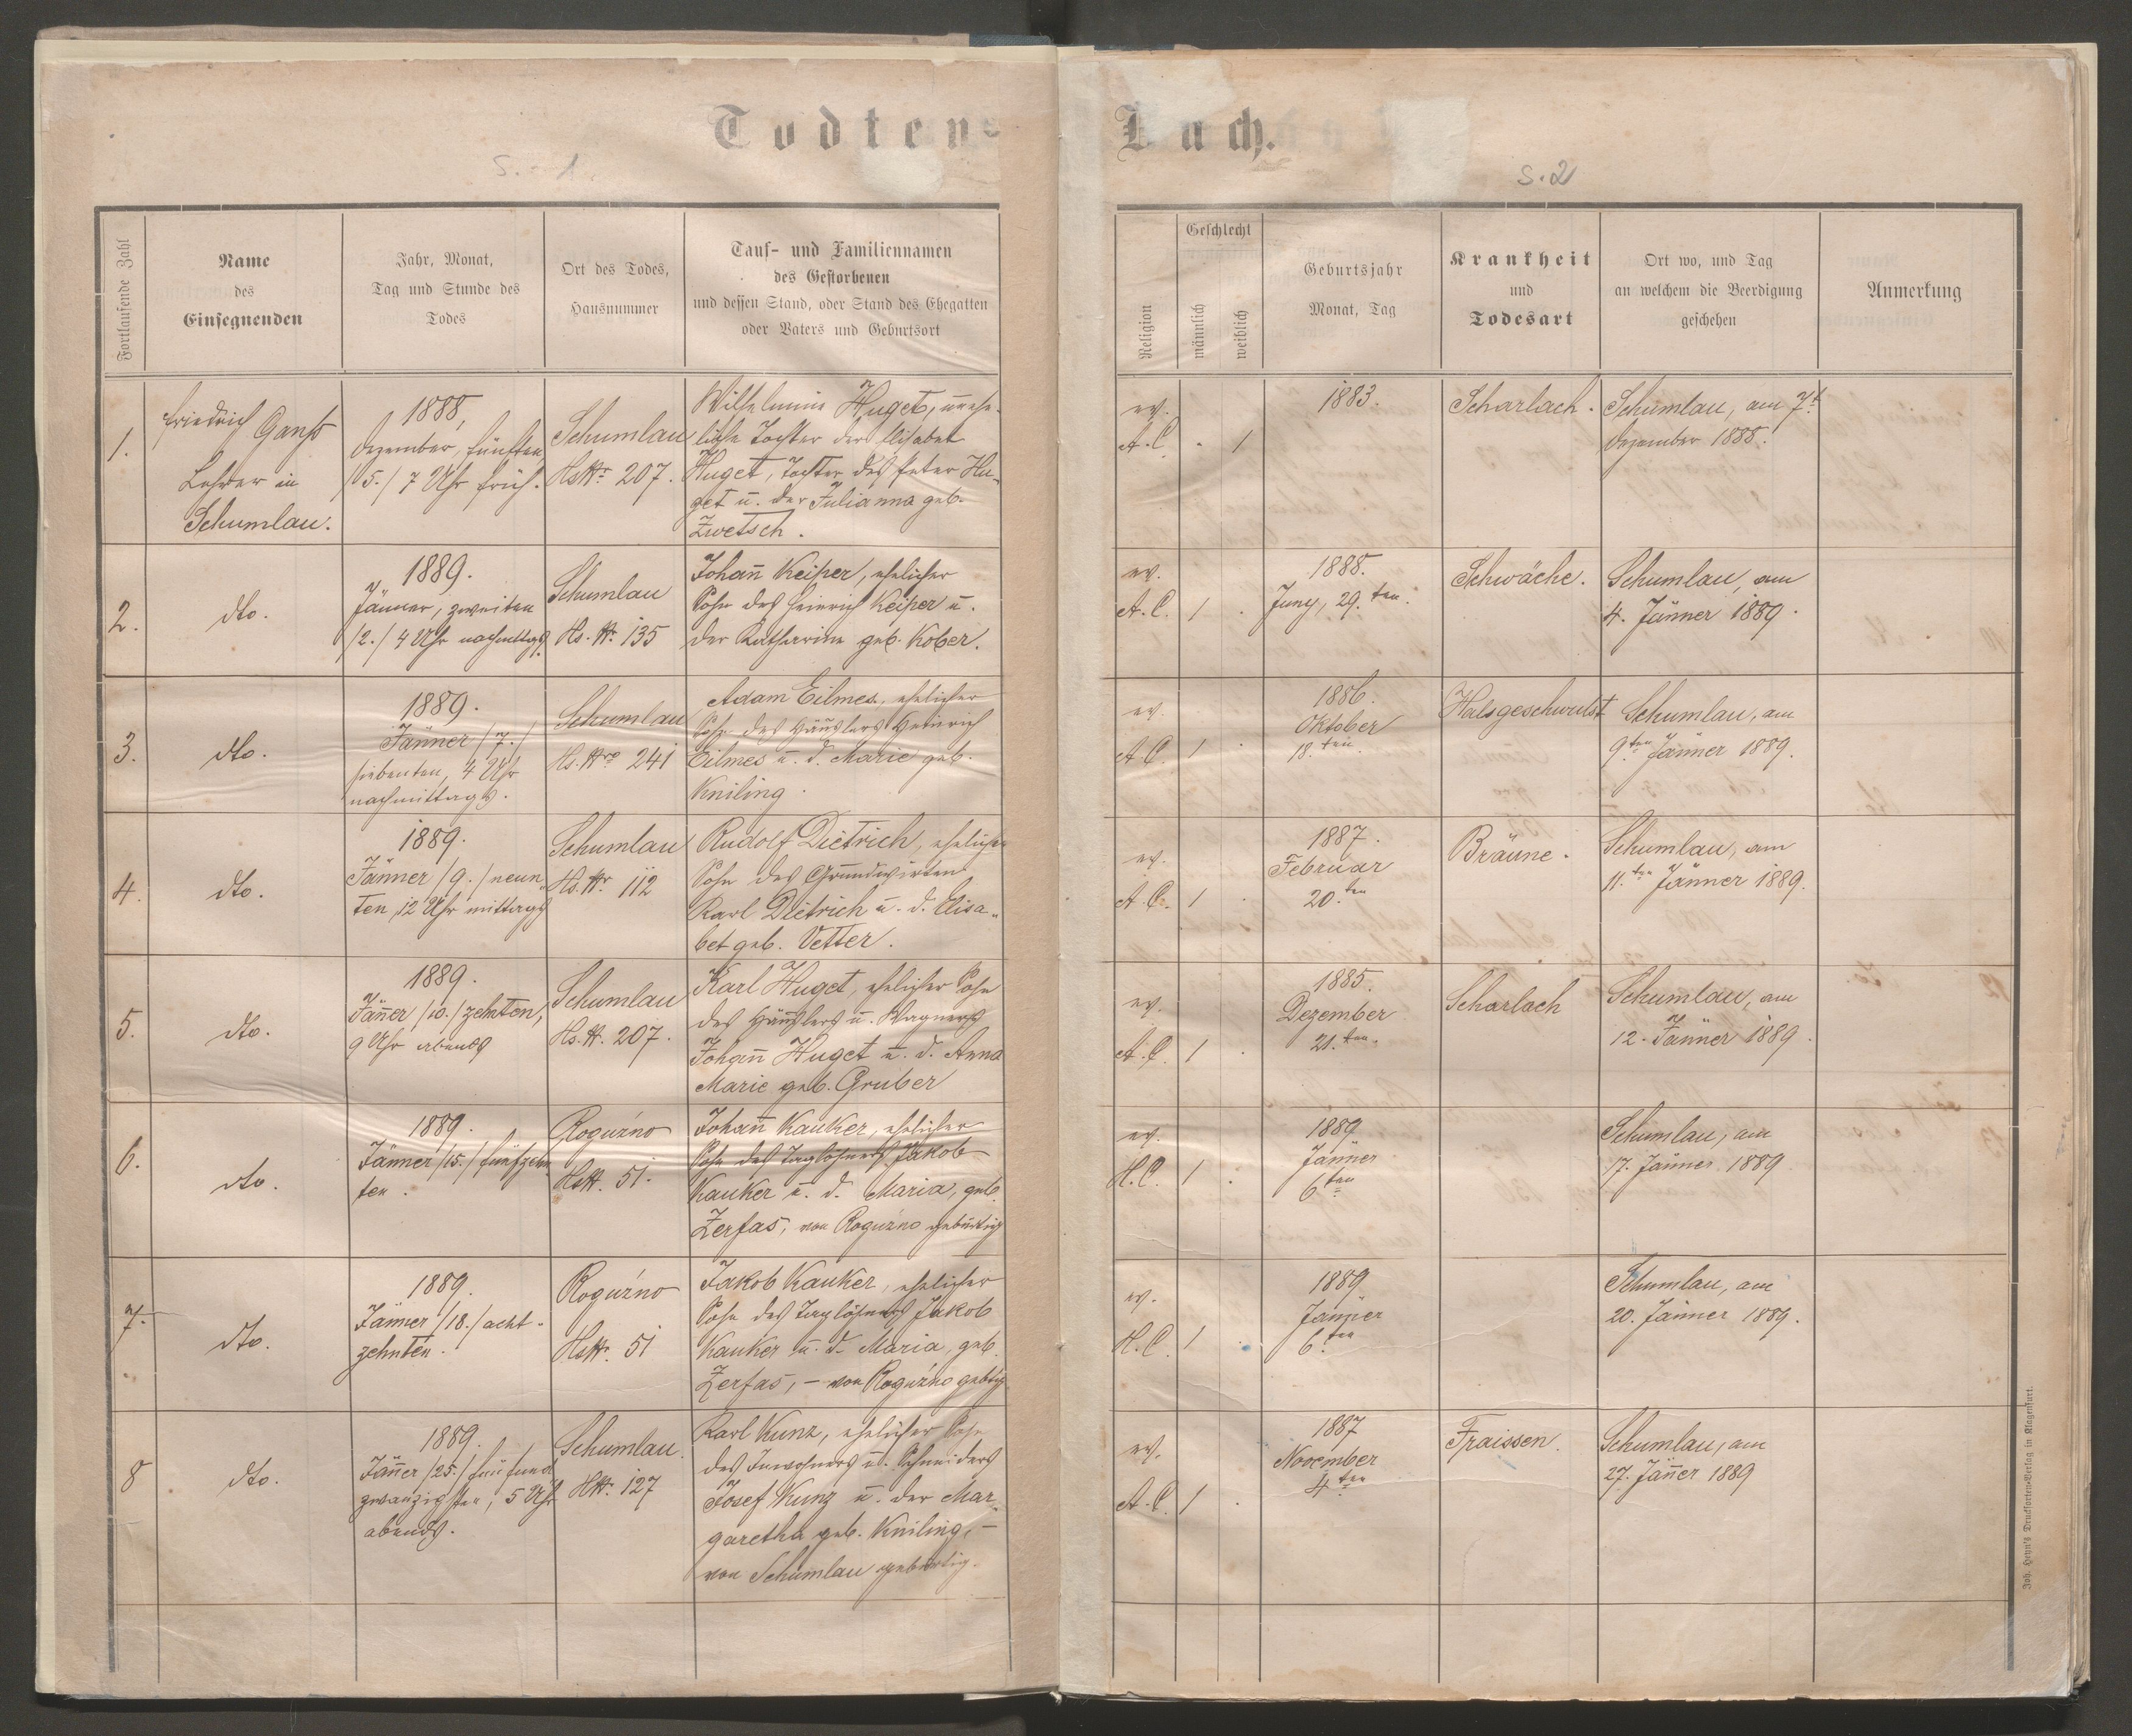 Todten-
Buch.
S. 1.
S. 2
Fortlaufende Zahl
Name
des
Einsegnenden
Jahr, Monat,
Tag und Stunde des
Todes
Ort des Todes,
Hausnummer
Tauf- und Familiennamen
des Gestorbenen
und dessen Stand, oder Stand des Ehegatten
oder Vaters und Geburtsort
Religion
Geschlecht
männlich
weiblich
Geburtsjahr
Monat, Tag
Krankheit
und
Todesart
Ort wo, und Tag
an welchem die Beerdigung
geschehen
Anmerkung
1.
Friedrich Ganß
Lehrer in
Schumlau.
1888,
Dezember, fünften
/5./ 7 Uhr früh.
Schumlau
HsNr. 207.
Wilhelmine Huget, unehe-
liche Tochter der Elisabet
Huget, Tochter des Peter Hu-
get u. der Julianna geb.
Zwetsch.
ev.
A.C.
1
1883.
Scharlach.
Schumlau, am 7t
Dezember 1888.
2.
dto.
1889.
Jänner, zweiten
/2./ 4 Uhr nachmittgs.
Schumlau
Hs. Nr. 135
Johann Keiper, ehelicher
Sohn des Heinrich Keiper u.
der Katharine geb. Kober.
ev.
A.C.
1
1888.
Juny, 29.ten
Schwäche.
Schumlau, am
4. Jänner 1889.
3.
dto.
1889.
Jänner /7./
siebenten, 4 Uhr
nachmittags.
Schumlau
Hs. Nro 241
Adam Eilmes, ehelicher
Sohn des Häuslers Heinrich
Eilmes u. d. Marie geb.
Kniling.
ev.
A.C.
1
1886.
Oktober
18.ten
Halsgeschwulst
Schumlau, am
9ten Jänner 1889.
4.
dto.
1889.
Jänner /9./ neun-
ten, 12 Uhr mittags
Schumlau
Hs. Nr. 112
Rudolf Dietrich, ehelicher
Sohn des Grundwirten
Karl Dietrich u. d. Elisa-
bet geb. Vetter.
ev.
A.C.
1
1887.
Februar
20.ten
Bräune.
Schumlau, am
11.ten Jänner 1889.
5.
dto.
1889.
Jänner /10./ zehnten,
9 Uhr abends
Schumlau
Hs. N. 207.
Karl Huget, ehelicher Sohn
des Häuslers u. Wagners
Johann Huget u. d. Anna
Marie geb. Gruber
ev.
A.C.
1
1885.
Dezember
21.ten
Scharlach
Schumlau, am
12. Jänner 1889.
6.
dto.
1889.
Jänner /15./ fünfzehn
ten.
Roguźno
HsN. 51.
Johann Kauker, ehelicher
Sohn des Taglöhners Jakob
Kauker u. d. Maria, geb.
Zerfas, von Roguźno gebürtig
ev.
H.C.
1
1889
Jänner
6ten
Schumlau, am
17. Jänner 1889
7.
dto.
1889.
Jänner /18./ acht-
zehnten.
Roguźno
HsNr. 51
Jakob Kauker, ehelicher
Sohn des Taglöhners Jakob
Kauker u. d. Maria, geb.
Zerfas, – von Roguźno gebtg.
ev.
H.C.
1
1889
Jänner
6.ten
Schumlau, am
20. Jänner 1889.
8
dto.
1889.
Jänner /25./ fünfund
zwanzigsten, 5 Uhr
abends.
Schumlau.
HNr. 127
Karl Kunz, ehelicher Sohn
des Inwohners u. Schneiders
Josef Kunz u. der Mar-
garetha geb. Kniling, –
von Schumlau gebürtig.
ev.
A.C.
1
1887
November
4ten
Fraissen.
Schumlau, am
27. Jänner 1889
Joh. Heyn's Drucksorten-Verlag in Klagenfurt.